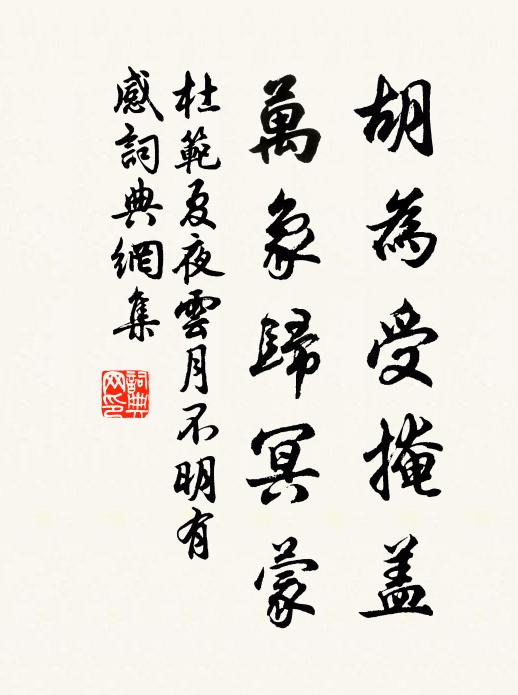 胡為受掩盖
萬象歸冥蒙
杜範夏夜雲月不明有
感詞典網集
詞典网印